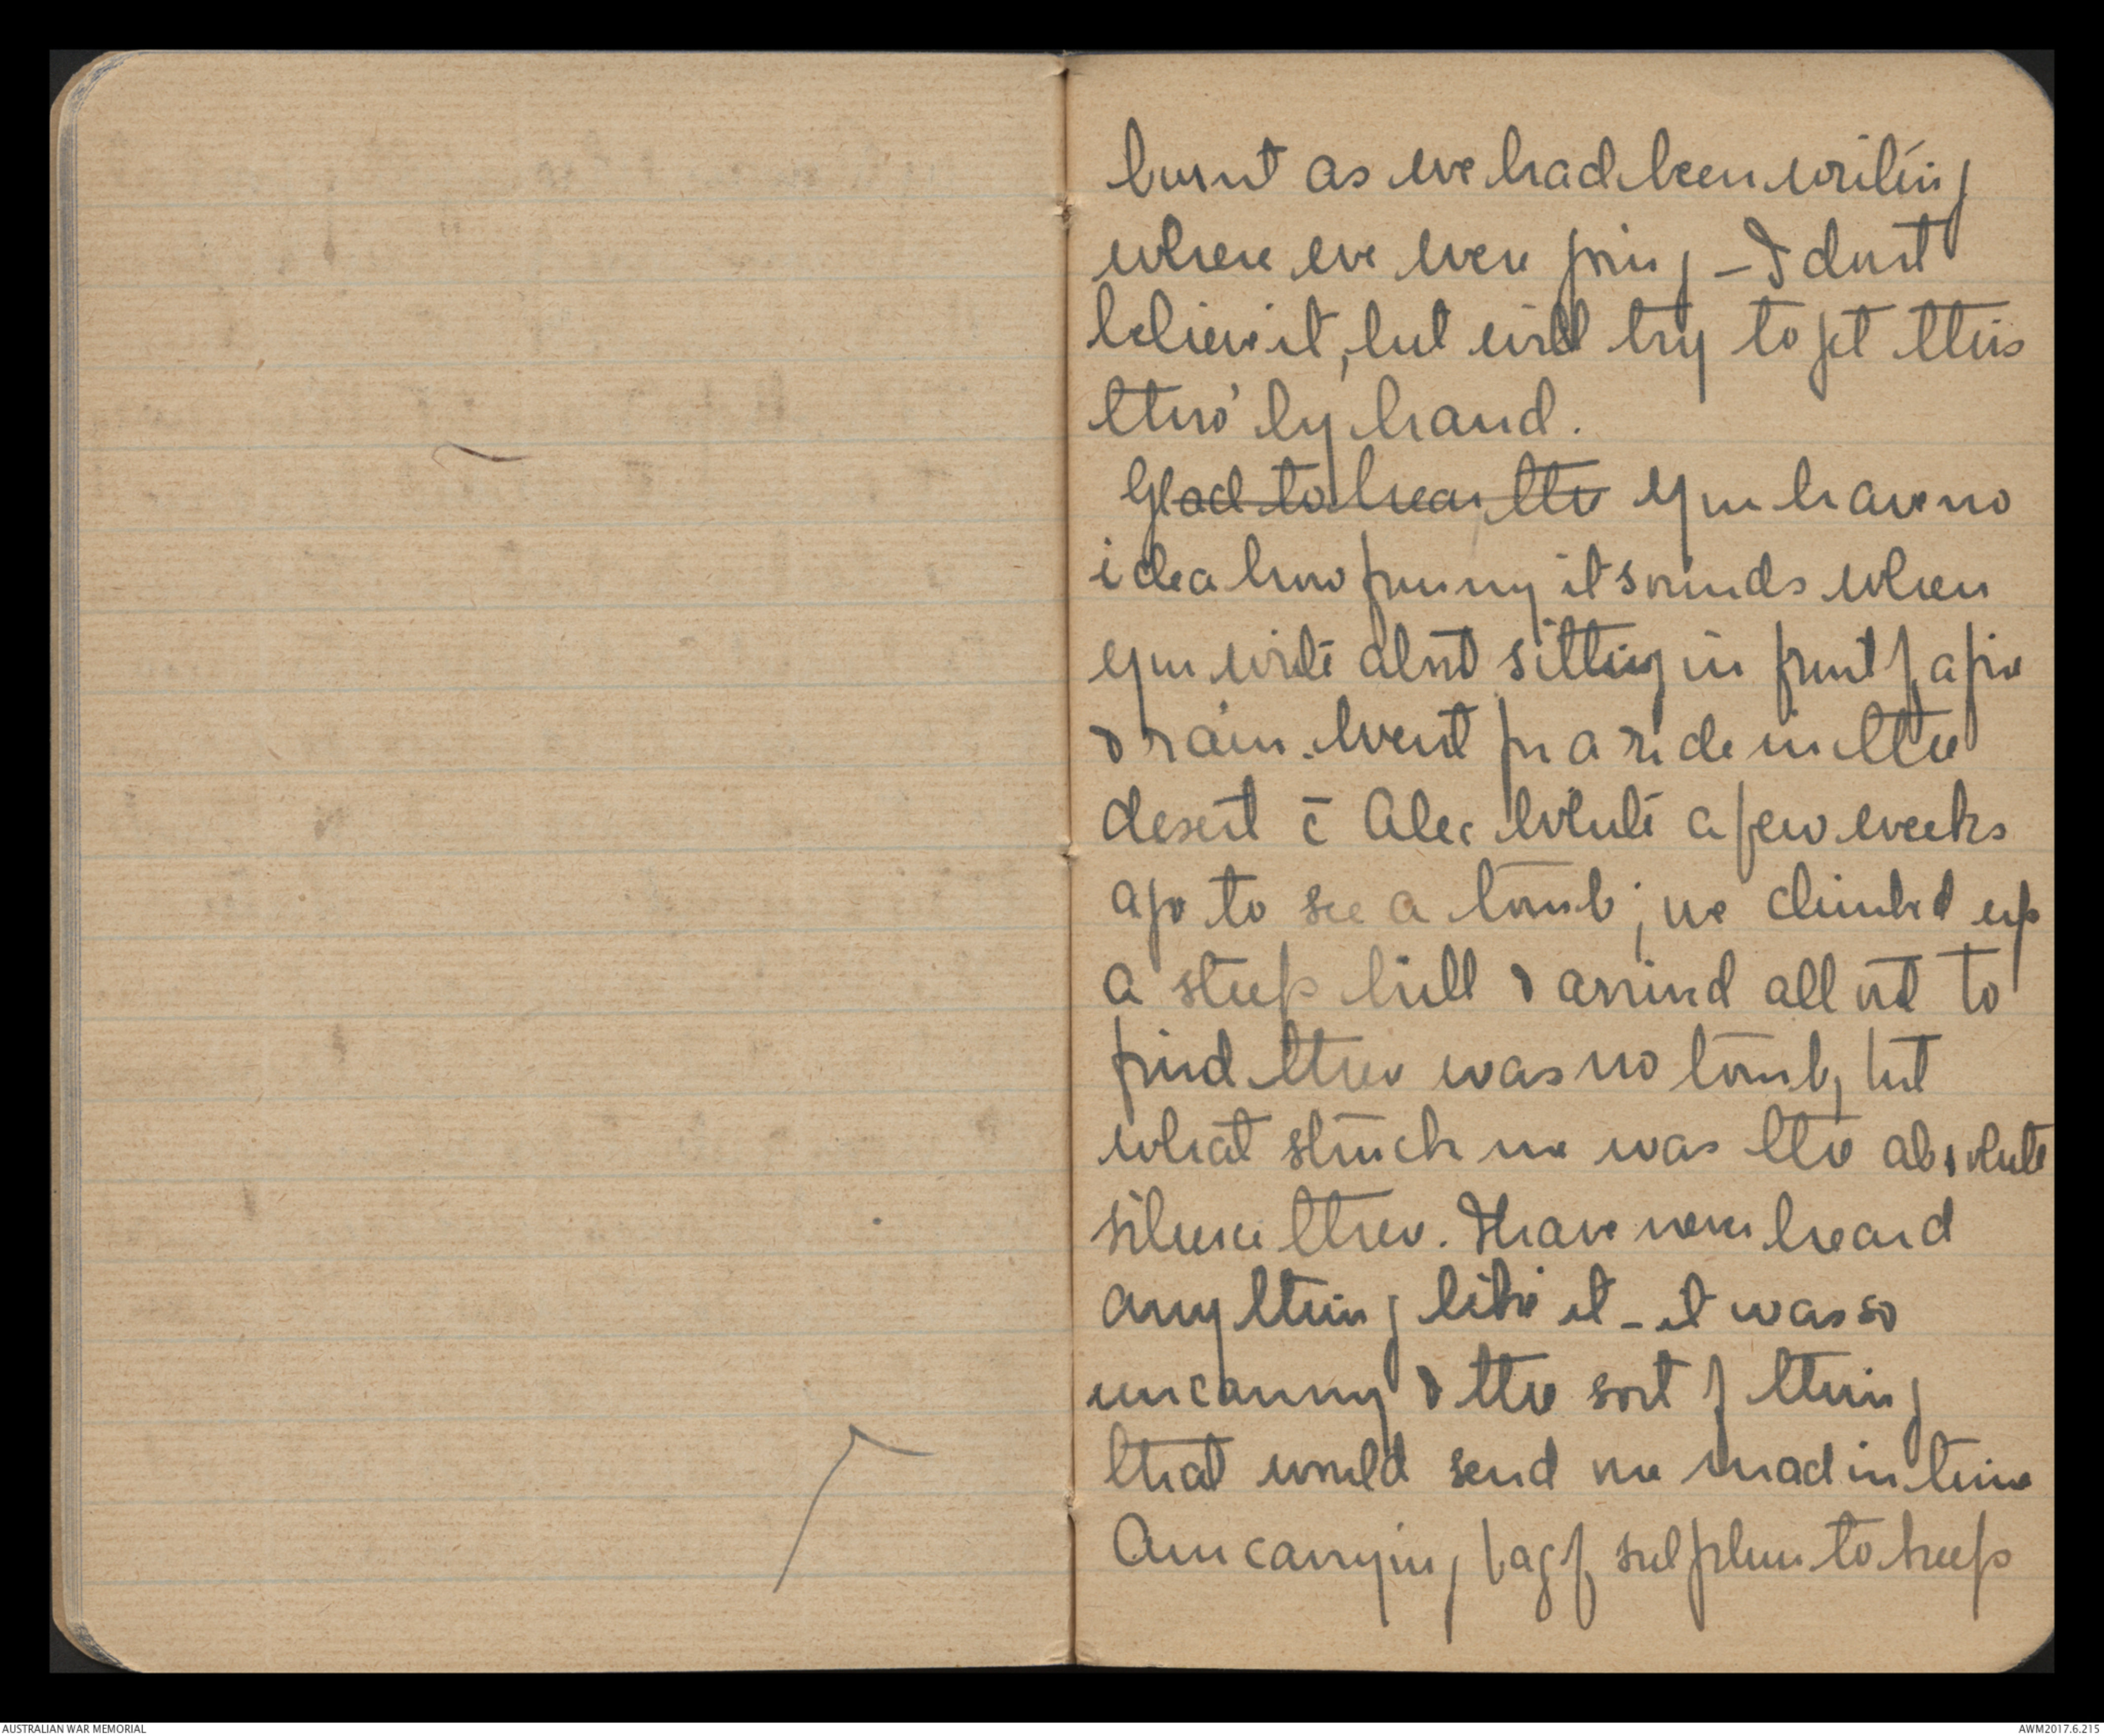 burnt as we had been writing
where we were going – I dont
believe it, but will try to get this
thro' by hand.
Glad to hear the you have no
idea how funny it sounds when
you write about sitting in front of a fire
& rain. Went for a ride in the
desert c̄ Alec White a few weeks
ago to see a tomb; we climbed up
a steep hill & arrived all out to
find there was no tomb, but
what struck me was the absolute
silence there. I have never heard
anything like it – it was so
uncanny & the sort of thing
that would send me mad in time
Am carrying bag of sulphur to keep
AUSTRALIAN WAR MEMORIAL
AWM2017.6.215